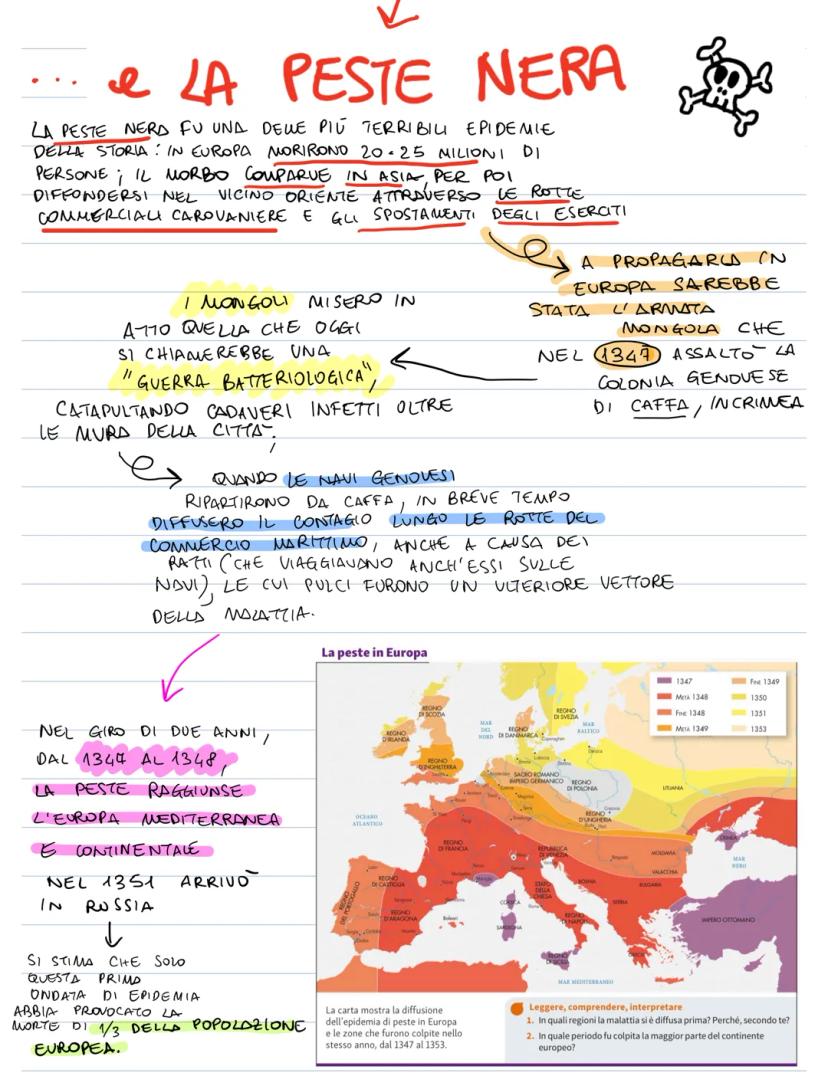 ... e LA PESTE NERA
LA PESTE NERA FU UNA DELLE PIÙ TERRIBILI EPIDEMIE
DELLA STORIA: IN EUROPA MORIRONO 20-25 MILIONI DI
PERSONE; IL MORBO COMPARVE IN ASIA, PER POI
DIFFONDERSI NEL VICINO ORIENTE ATTRAVERSO LE ROTTE
COMMERCIALI CAROVANIERE E GLI SPOSTAMENTI DEGLI ESERCITI
A PROPAGARLA IN
EUROPA SAREBBE
STATA L'ARMATA
MONGOLA CHE
NEL 1347 ASSALTÒ LA
COLONIA GENOVESE
DI CAFFA, IN CRIMEA
I MONGOLI MISERO IN
ATTO QUELLA CHE OGGI
SI CHIAMEREBBE UNA
"GUERRA BATTERIOLOGICA",
CATAPULTANDO CADAVERI INFETTI OLTRE
LE MURA DELLA CITTÀ;
QUANDO LE NAVI GENOVESI
RIPARTIRONO DA CAFFA, IN BREVE TEMPO
DIFFUSERO IL CONTAGIO LUNGO LE ROTTE DEL
COMMERCIO MARITTIMO, ANCHE A CAUSA DEI
RATTI (CHE VIAGGIAVANO ANCH'ESSI SULLE
NAVI), LE CUI PULCI FURONO UN ULTERIORE VETTORE
DELLA MALATTIA.
NEL GIRO DI DUE ANNI,
DAL 1347 AL 1348,
LA PESTE RAGGIUNSE
L'EUROPA MEDITERRANEA
E CONTINENTALE
NEL 1351 ARRIVÒ
IN RUSSIA
SI STIMA CHE SOLO
QUESTA PRIMA
ONDATA DI EPIDEMIA
ABBIA PROVOCATO LA
MORTE DI 1/3 DELLA POPOLAZIONE
EUROPEA.
La peste in Europa
1347
METÀ 1348
FINE 1348
METÀ 1349
FINE 1349
1350
1351
1353
REGNO
DI SCOZIA
REGNO
D'IRLANDA
REGNO
D'INGHILTERRA
MAR
DEL
NORD
REGNO
DI DANIMARCA
REGNO
DI SVEZIA
MAR
BALTICO
SACRO ROMANO
IMPERO GERMANICO
REGNO
DI POLONIA
LITUANIA
OCEANO
ATLANTICO
REGNO
D'UNGHERIA
REGNO
DI FRANCIA
REPUBBLICA
DI VENEZIA
MOLDAVIA
VALACCHIA
CRIMEA
MAR
NERO
BOSNIA
SERBIA
BULGARIA
REGNO
DI PORTOGALLO
REGNO
DI CASTIGLIA
REGNO
D'ARAGONA
Baleari
CORSICA
SARDEGNA
STATO
DELLA
CHIESA
REGNO
DI NAPOLI
REGNO
DI SICILIA
IMPERO OTTOMANO
MAR MEDITERRANEO
La carta mostra la diffusione
dell'epidemia di peste in Europa
e le zone che furono colpite nello
stesso anno, dal 1347 al 1353.
Leggere, comprendere, interpretare
1. In quali regioni la malattia si è diffusa prima? Perché, secondo te?
2. In quale periodo fu colpita la maggior parte del continente
europeo?